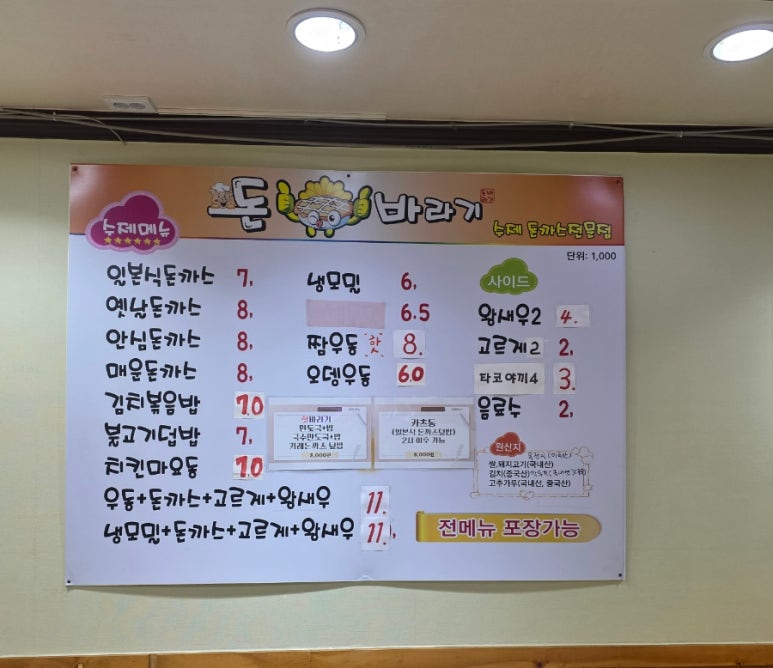 돈 바라기
수제메뉴
수제 돈까스전문점
단위: 1,000
일본식돈까스 7,
옛날돈까스 8,
안심돈까스 8,
매운돈까스 8,
김치볶음밥 7.0
불고기덮밥 7,
치킨마요동 7.0
우동+돈까스+고르게+왕새우 11.
냉모밀+돈까스+고르게+왕새우 11.,
냉모밀 6,
6.5
짬우동 8.
오뎅우동 6.0
바라기
만두국+밥
국수만두국+밥
카레돈까스 덮밥
8,000원
카츠동
(일본식 돈까스덮밥)
2시 이후 가능
8,000원
사이드
왕새우2 4.
고르게2 2,
타코야끼4 3.
음료수 2,
원산지
쌀,돼지고기(국내산)
김치(중국산)
고추가루(국내산, 중국산)
전메뉴 포장가능